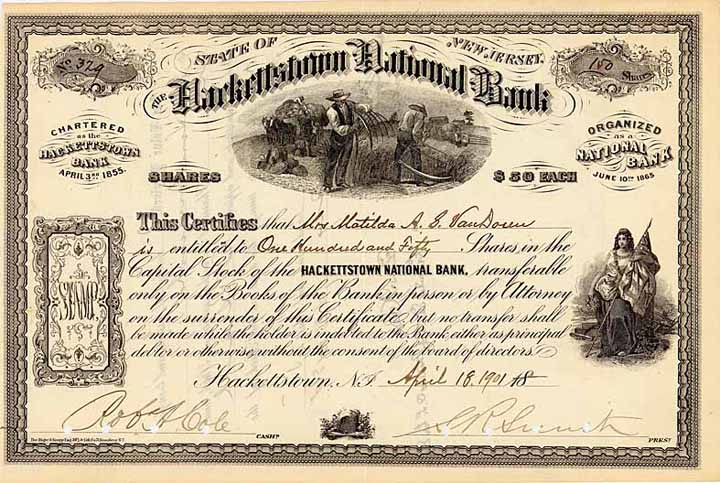 No 329
STATE OF NEW JERSEY.
150 Shares
THE Hackettstown National Bank
CHARTERED
as the
HACKETTSTOWN
BANK
APRIL 3RD 1855.
ORGANIZED
as a
NATIONAL BANK
JUNE 10TH 1865
SHARES $50 EACH
This Certifies that Mrs Matilda A. E. VanDoren
is entitled to One Hundred and Fifty Shares in the
Capital Stock of the HACKETTSTOWN NATIONAL BANK, transferable
only on the Books of the Bank in person or by Attorney
on the surrender of this Certificate, but no transfer shall
be made while the holder is indebted to the Bank either as principal
debtor or otherwise, without the consent of the board of directors.
STAMP
Hackettstown, N.J. April 18, 1901 18
Robt A Cole
CASHR
PREST